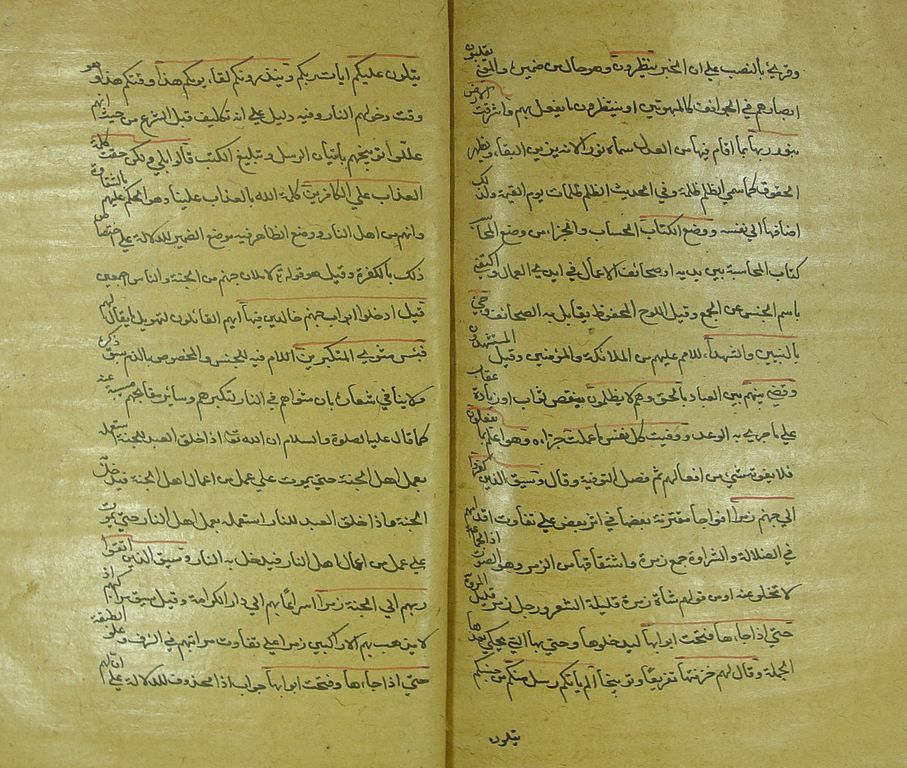 وقرئ بالنصب على ان الخبر ينظرون وهو حال من ضميره والمعنى يقلبون
ابصارهم في الجوانب كالمبهوتين او ينتظرون ما يفعل بهم واشرقت الارض
بنور ربها بما اقام فيها من العدل سماه نورا لانه يزين البقاع ويظهر
الحقوق كما سمي الظلم ظلمة وفي الحديث الظلم ظلمات يوم القيمة ولذلك
اضافها الى نفسه ووضع الكتاب الحساب والجزاء من وضع المحاسب
كتاب المحاسبة بين يديه او صحائف الاعمال في ايدي العمال واكتفى
باسم الجنس عن الجمع وقيل اللوح المحفوظ يقابل به الصحائف وجئ
بالنبيين والشهداء للامم عليهم من الملائكة والمؤمنين وقيل المستشهدون
وقضي بينهم بين العباد بالحق وهم لا يظلمون بنقص ثواب او زيادة عقاب
على ما جرى به الوعد ووفيت كل نفس ما عملت جزاءه وهو اعلم بما يفعلون
فلا يفوته شئ من افعالهم ثم فصل التوفية وقال وسيق الذين كفروا
الى جهنم زمرا افواجا متفرقة بعضها في اثر بعض على تفاوت اقدامهم
في الضلالة والشرارة جمع زمرة واشتقاقها من الزمر وهو الصوت اذ الجماعة
لا تخلو عنه او من قولهم شاة زمرة قليلة الشعر ورجل زمر قليل المروة
حتى اذا جاءها فتحت ابوابها ليدخلوها وحتى التي يحكى بعدها
الجملة وقال لهم خزنتها تقريعا وتوبيخا الم يأتكم رسل منكم من جنسكم
يتلون
يتلون عليكم ايات ربكم وينذرونكم لقاء يومكم هذا وقتكم هذا وهو
وقت دخولهم النار وفيه دليل على انه لا تكليف قبل الشرع من حيث انهم
عللوا توبيخهم باتيان الرسل وتبليغ الكتب قالوا بلى ولكن حقت كلمة
العذاب على الكافرين كلمة الله بالعذاب علينا وهو الحكم عليهم بالشقاوة
وانهم من اهل النار ووضع الظاهر فيه موضع الضمير للدلالة على اختصاص
ذلك بالكفرة وقيل هو قوله لاملان جهنم من الجنة والناس اجمعين
قيل ادخلوا ابواب جهنم خالدين فيها ابهم القائل لتهويل ما يقال لهم
فبئس مثوى المتكبرين اللام فيه للجنس والمخصوص بالذم سبق ذكره
ولا ينافي اشعاره بان مثواهم في النار لتكبرهم وسائر مقابحهم مسببة عنه
كما قال عليه الصلوة والسلام ان الله تعالى اذا خلق العبد للجنة استعمله
بعمل اهل الجنة حتى يموت على عمل من اعمال اهل الجنة فيدخل
الجنة واذا خلق العبد للنار استعمله بعمل اهل النار حتى يموت
على عمل من اعمال اهل النار فيدخل به النار وسيق الذين اتقوا
ربهم الى الجنة زمرا اسراعا بهم الى دار الكرامة وقيل سيق مراكبهم اذ
لا يذهب بهم الا راكبين زمرا على تفاوت مراتبهم في الشرف وعلو الطبقة
حتى اذا جاءها وفتحت ابوابها جواب اذا محذوف للدلالة على ان لهم